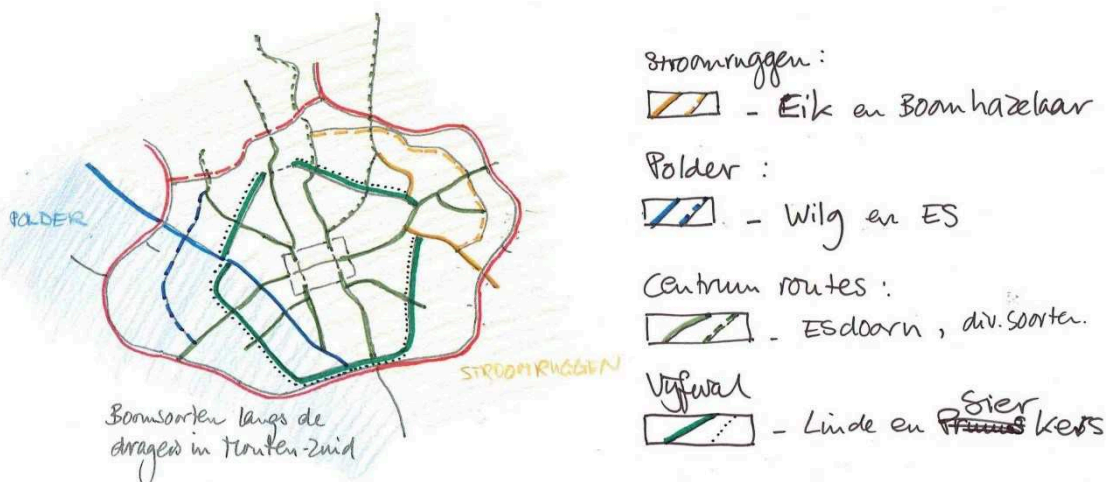 POLDER
STROOMRUGGEN
Boomsoorten langs de
dragers in Houten-Zuid
stroomruggen:
- Eik en Boomhazelaar
Polder:
- Wilg en ES
Centrum routes:
- Esdoorn, div. soorten.
Vijfwal
- Linde en Prunus Sier kers